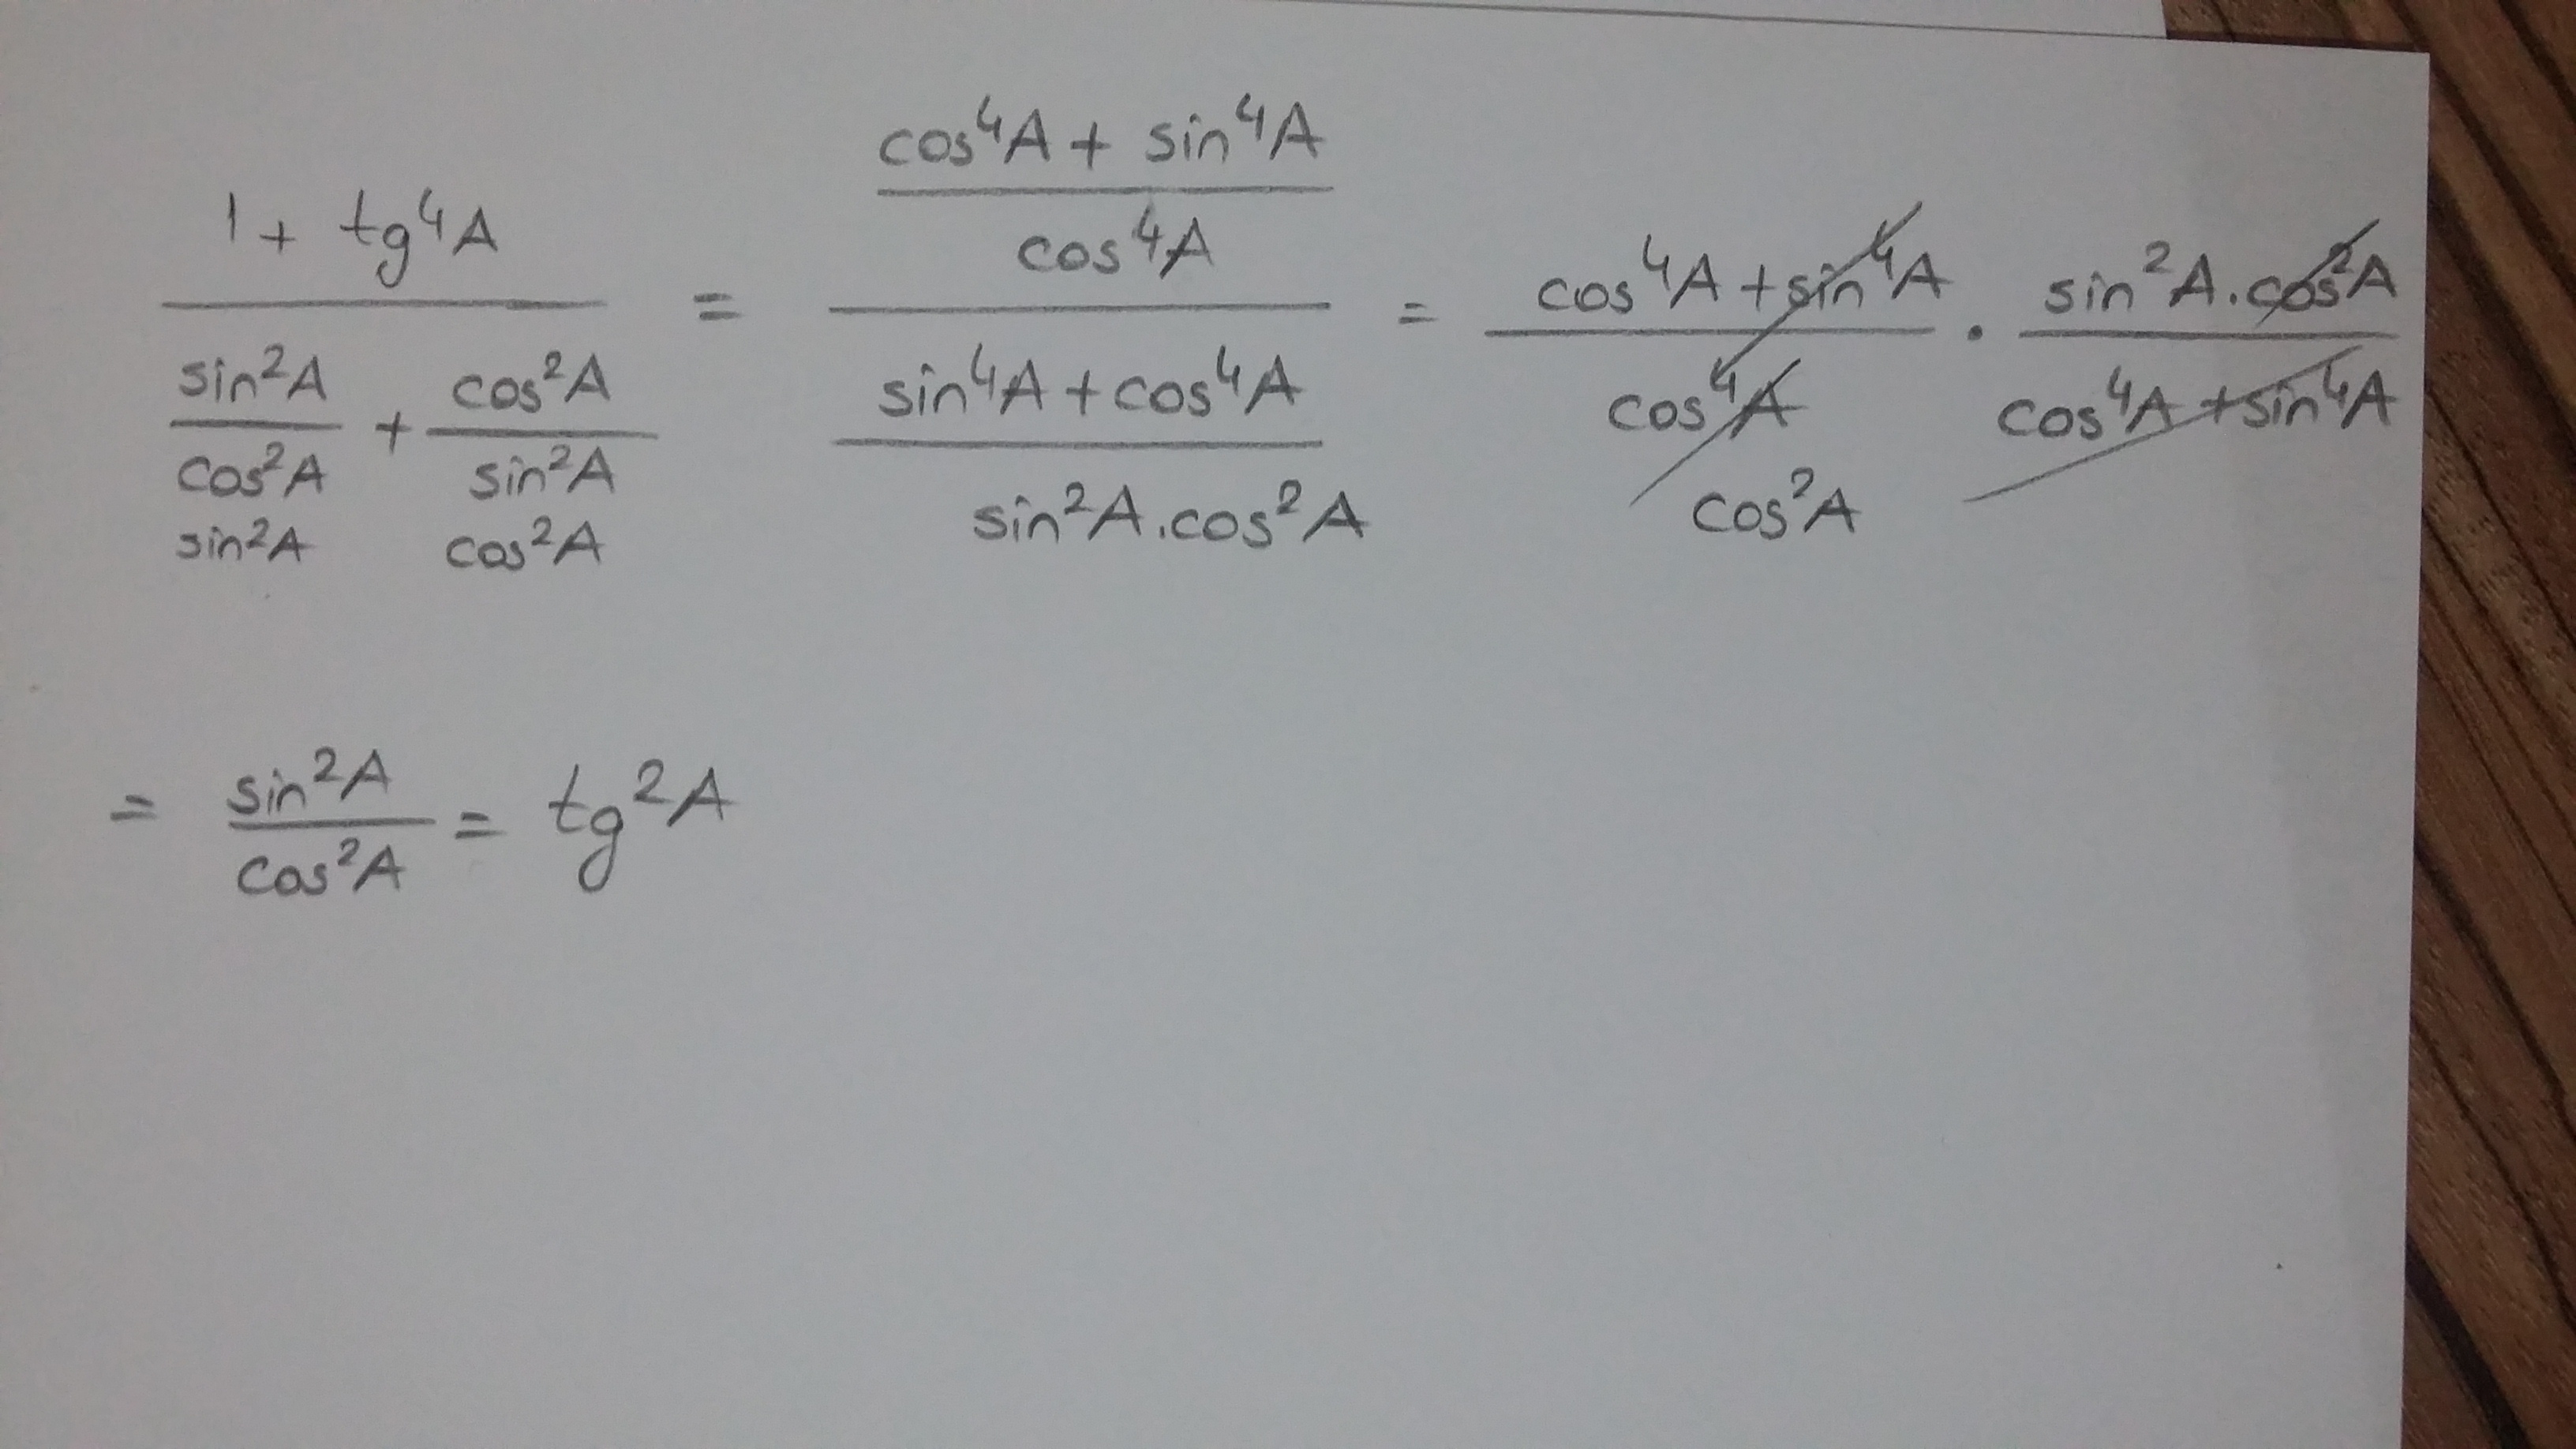 1 + tg⁴A / (sin²A / cos²A + cos²A / sin²A) = ((cos⁴A + sin⁴A) / cos⁴A) / ((sin⁴A + cos⁴A) / (sin²A . cos²A)) = (cos⁴A + sin⁴A) / cos⁴A . (sin²A . cos²A) / (cos⁴A + sin⁴A)
sin²A cos²A cos²A
= sin²A / cos²A = tg²A